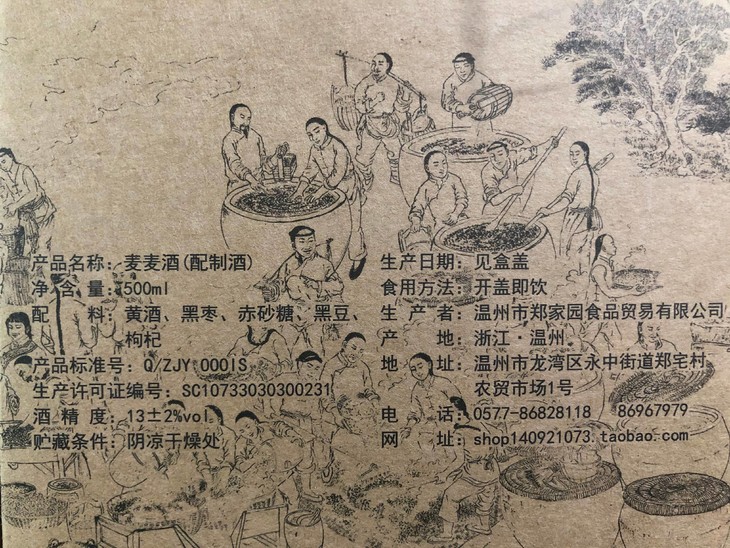 产品名称：麦麦酒(配制酒)
净含量：500ml
配料：黄酒、黑枣、赤砂糖、黑豆、
枸杞
产品标准号：Q/ZJY 0001S
生产许可证编号：SC10733030300231
酒精度：13±2%vol
贮藏条件：阴凉干燥处
生产日期：见盒盖
食用方法：开盖即饮
生产者：温州市郑家园食品贸易有限公司
产地：浙江·温州
地址：温州市龙湾区永中街道郑宅村
农贸市场1号
电话：0577-86828118 86967979
网址：shop140921073.taobao.com